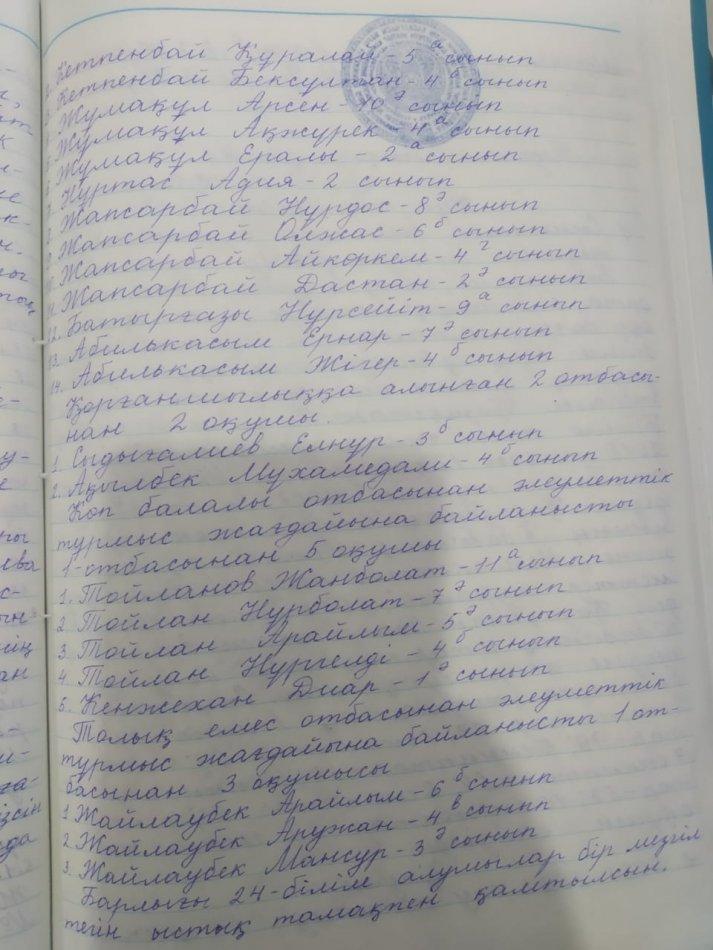 Кетпенбай Құралай - 5 а сынып
Кетпенбай Бексұлтан - 4 б сынып
Жұмақұл Арсен - 10 ә сынып
Жұмақұл Ақжүрек - 4 а сынып
Жұмақұл Ералы - 2 а сынып
Нұртас Адия - 2 сынып
Жапсарбай Нұрдос - 8 ә сынып
Жапсарбай Олжас - 6 б сынып
Жапсарбай Айкөркем - 4 г сынып
11. Жапсарбай Дастан - 2 ә сынып
12. Батырғазы Нұрсейіт - 9 а сынып
13. Абилькасым Ернар - 7 ә сынып
14. Абилькасым Жігер - 4 б сынып
Қорғаншылыққа алынған 2 отбасы-
нан 2 оқушы.
1. Сыдығалиев Елнұр - 3 б сынып
2. Ақылбек Мухамедали - 4 б сынып
Көп балалы отбасынан әлеуметтік
тұрмыс жағдайына байланысты
1-отбасынан 5 оқушы
1. Тойланов Жанболат - 11 а сынып
2 Тойлан Нұрболат - 7 ә сынып
3 Тойлан Арайлым - 5 ә сынып
4. Тойлан Нұргелді - 4 б сынып
5. Кенжехан Диар - 1 ә сынып
Толық емес отбасынан әлеуметтік
тұрмыс жағдайына байланысты 1 от-
басынан 3 оқушысы
1 Жайлаубек Арайлым - 6 б сынып
2 Жайлаубек Аружан - 4 в сынып
3. Жайлаубек Мансур - 3 ә сынып
Барлығы 24-білім алушылар бір мезгіл
тегін ыстық тамақпен қамтылсын.